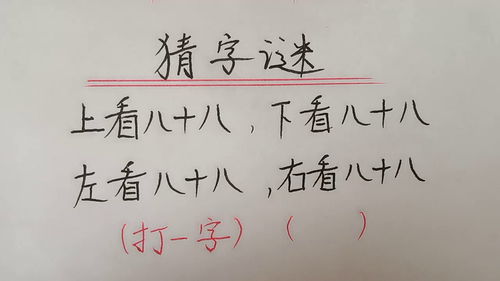 猜字谜
上看八十八，下看八十八
左看八十八，右看八十八
(打一字) (    )